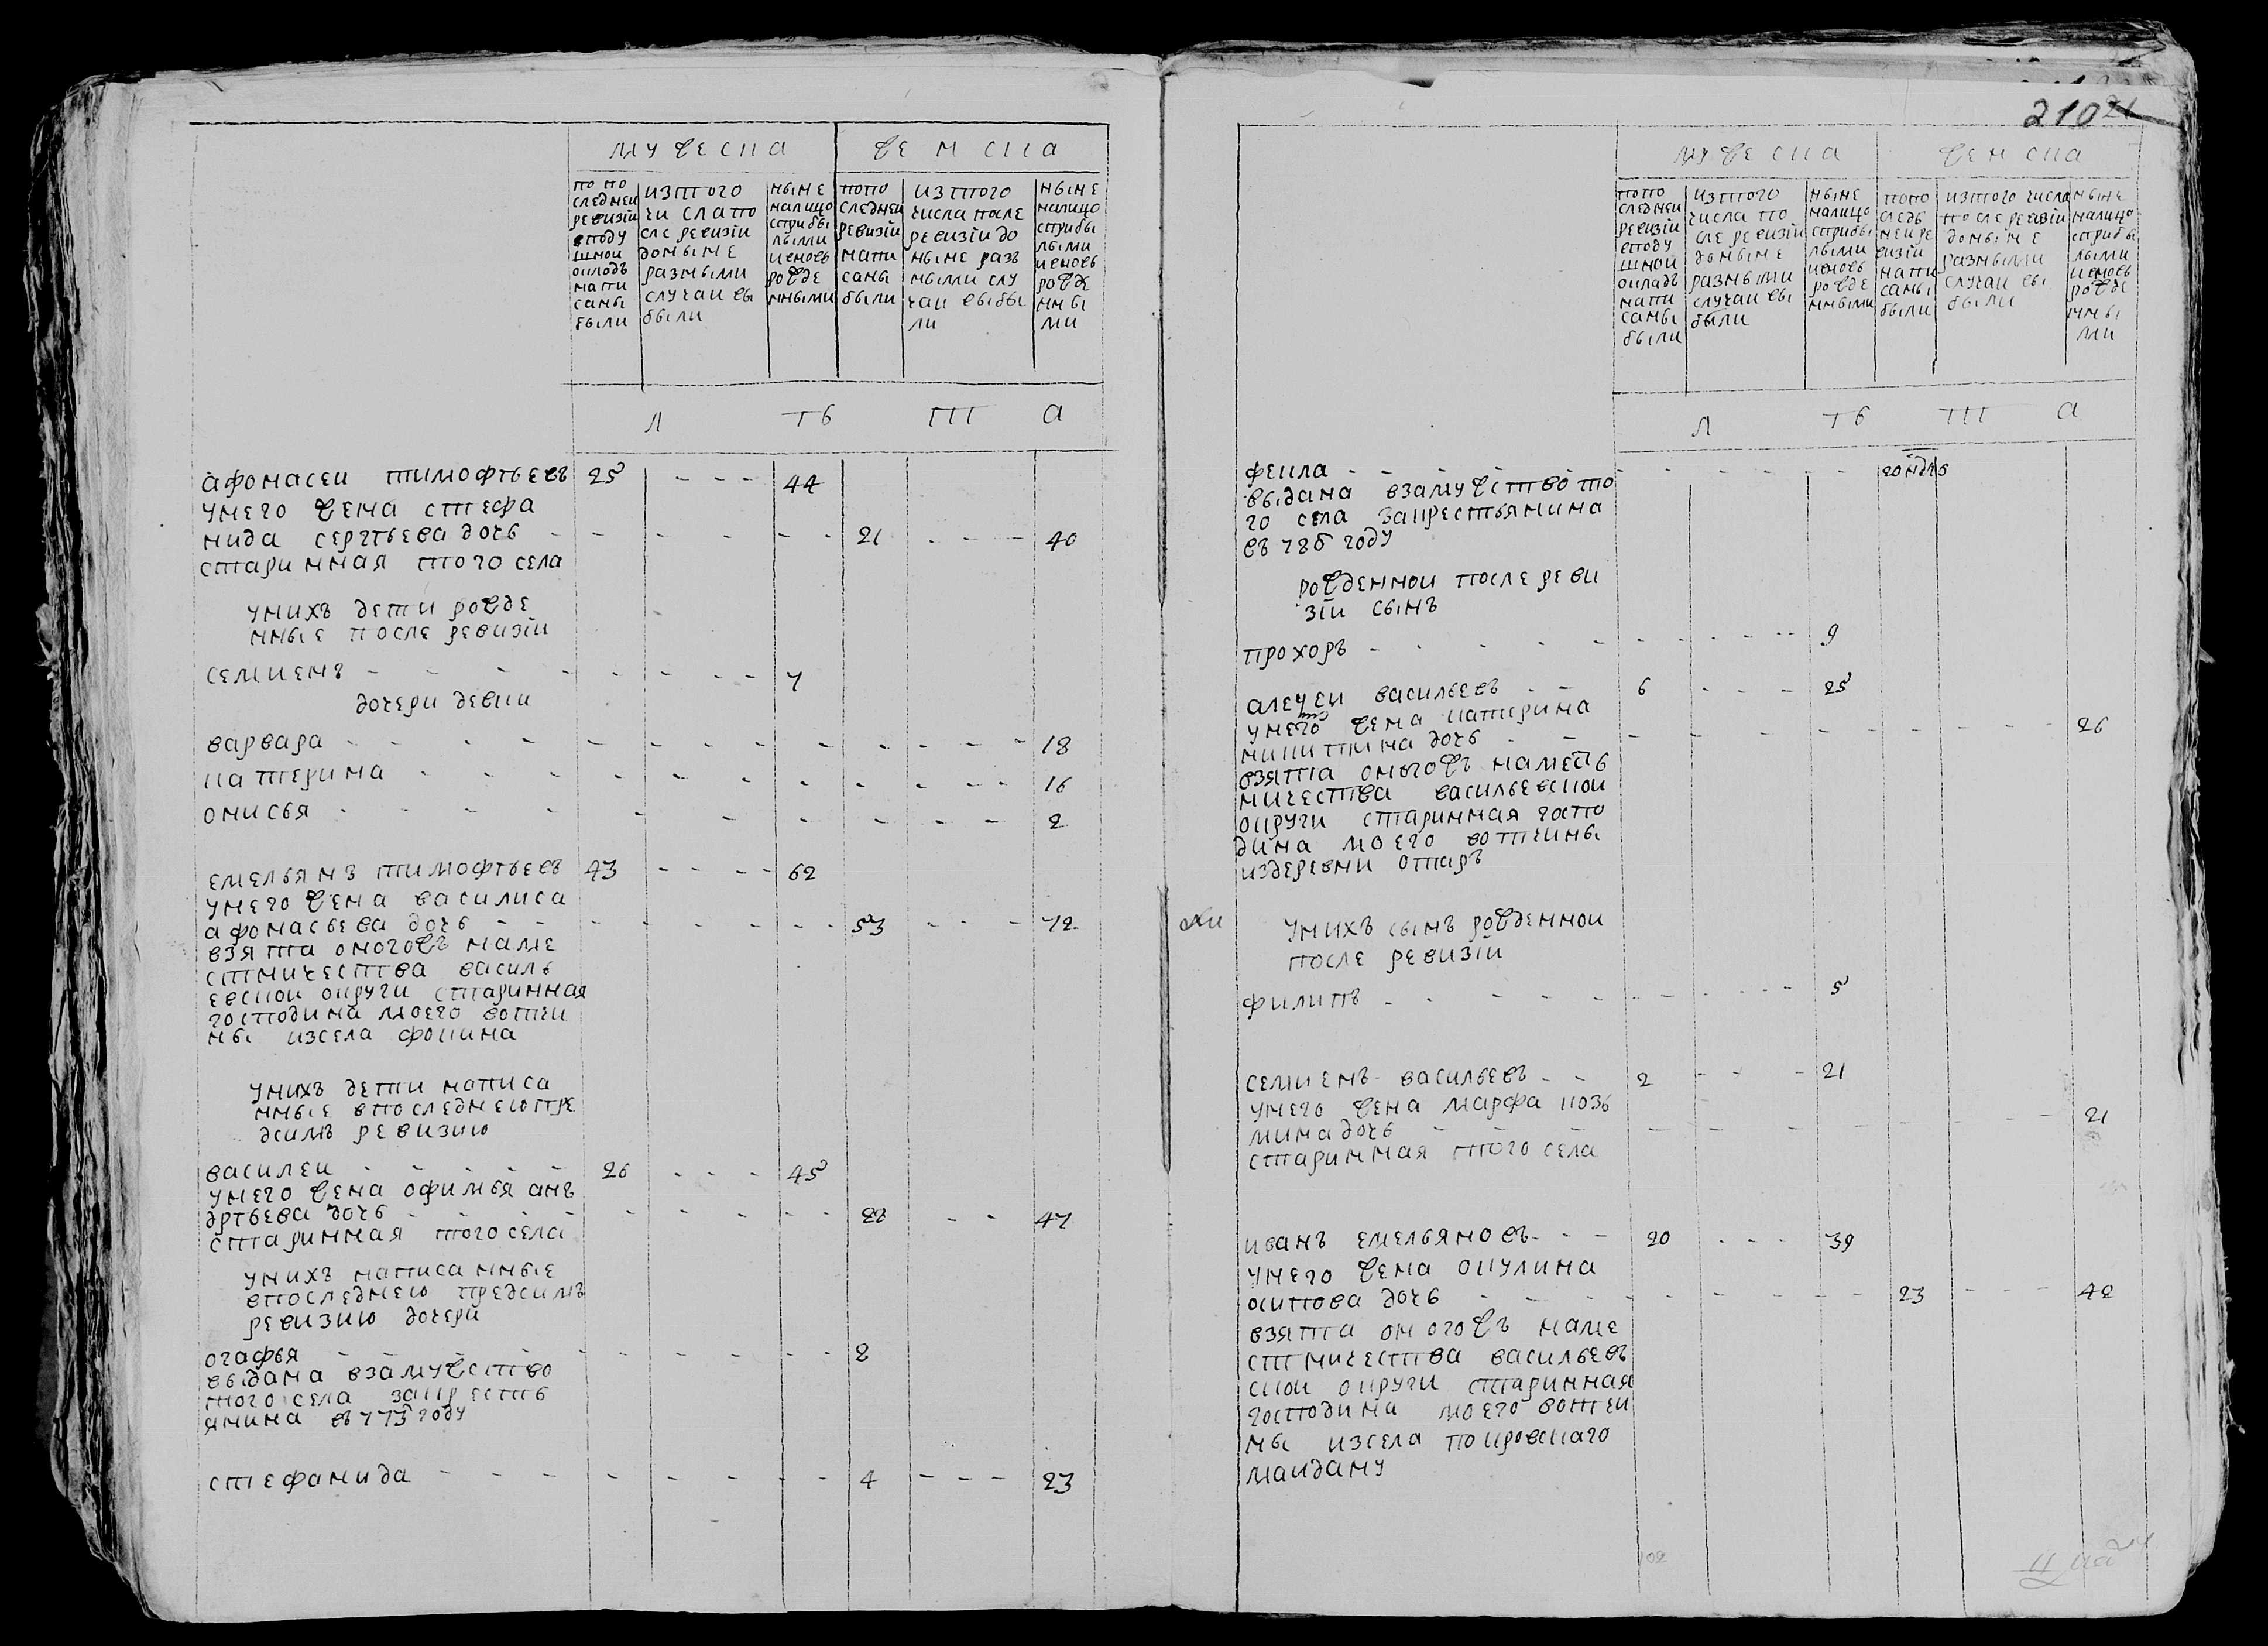 мужеска женска
по по
следней
ревизіи
в поду
шной
окладъ
напи
саны
были
из того
числа по
сле ревизіи
до ныне
разными
случаи вы
были
ныне
на лицо
с прибы
лыми
и вновь
рожде
нными
по по
следней
ревизіи
напи
саны
были
из того
числа после
ревизіи до
ныне раз
ными слу
чаи выбы
ли
ныне
на лицо
с прибы
лыми
и вновь
рожде
нны
ми
л ѣ т а
афонасеи тимофѣевъ 25 - - - 44
у него жена стефа
нида сергѣева дочь - - - - - - 21 - - - 40
старинная того села
у нихъ дети рожде
нные после ревизіи
семиенъ - - - - - - - - 7
дочери девки
варвара - - - - - - - - - - - - 18
катерина - - - - - - - - - - - 16
онисья - - - - - - - - - - - 2
емельянъ тимофѣевъ 43 - - - - 62
у него жена василиса
афонасьева дочь - - - - - - - - 53 - - - 72
взята оногожъ наме
стничества василь
евской округи старинная
господина моего вотчи
ны изсела фокина
у нихъ дети написа
нные впоследнеюпре
дсимъ ревизию
василеи - - - - - 26 - - - 45
у него жена офимья анъ
дрѣева дочь - - - - - - - - 22 - - 47
старинная того села
у нихъ написанные
впоследнею предсимъ
ревизию дочери
огафья - - - - - - - - - - 2
выдана взамужство
того села закресть
янина въ 773 году
стефанида - - - - - - - - 4 - - - 23
210
мужеска женска
по по
следней
ревизіи
в поду
шной
окладъ
напи
саны
были
из того
числа по
сле ревизіи
до ныне
разными
случаи вы
были
ныне
на лицо
с прибы
лыми
и вновь
рожде
нными
по по
следь
ней ре
визіи
напи
саны
были
из того числа
после ревизіи
до ныне
разными
случаи вы
были
ныне
на лицо
с прибы
лыми
и вновь
рожде
нны
ми
л ѣ т а
фекла - - - - - - - - - -
выдана взамужство то
го села закрестьянина
въ 786 году
рожденной после реви
зіи сынъ
прохоръ - - - - - - - - - - 9
алеѯеи васильевъ - - 6 - - - 25
у него жена катерина
никитина дочь - - - - - - - - - - 26
взята оногожъ намест
ничества васильевской
округи старинная госпо
дина моего вотчины
издеревни отаръ
у нихъ сынъ рожденной
после ревизіи
филипъ - - - - - - - - - - 5
семиенъ васильевъ - - 2 - - - 21
у него жена марфа козь
мина дочь - - - - - - - - - - - 21
старинная того села
иванъ емельяновъ - - - 20 - - - 39
у него жена окулина
осипова дочь - - - - - - - - - 23 - - - 42
взята оногожъ наме
стничества васильевъ
ской округи старинная
господина моего вотчи
ны изсела покровскаго
маидану
102